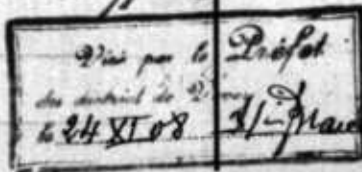 Visé par le Préfet
du district de Vevey
le 24 XI 08